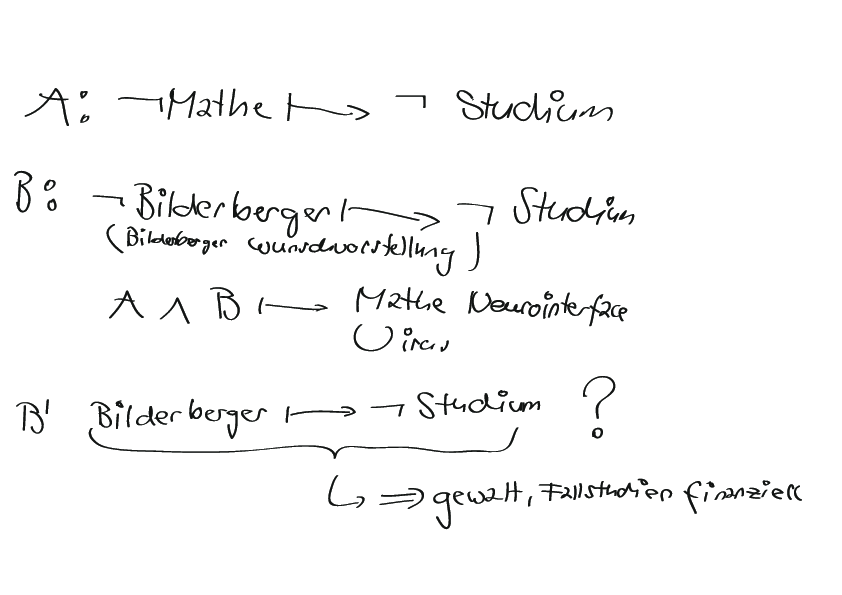 A: ¬Mathe ↦ ¬ Studium
B: ¬ Bilderberger ↦ ¬ Studium
(Bilderberger wunschvorstellung)
A ∧ B ↦ Mathe Neurointerface
Virus
B' Bilderberger ↦ ¬ Studium ?
↳ ⇒ gewalt, Fallstudien finanziell